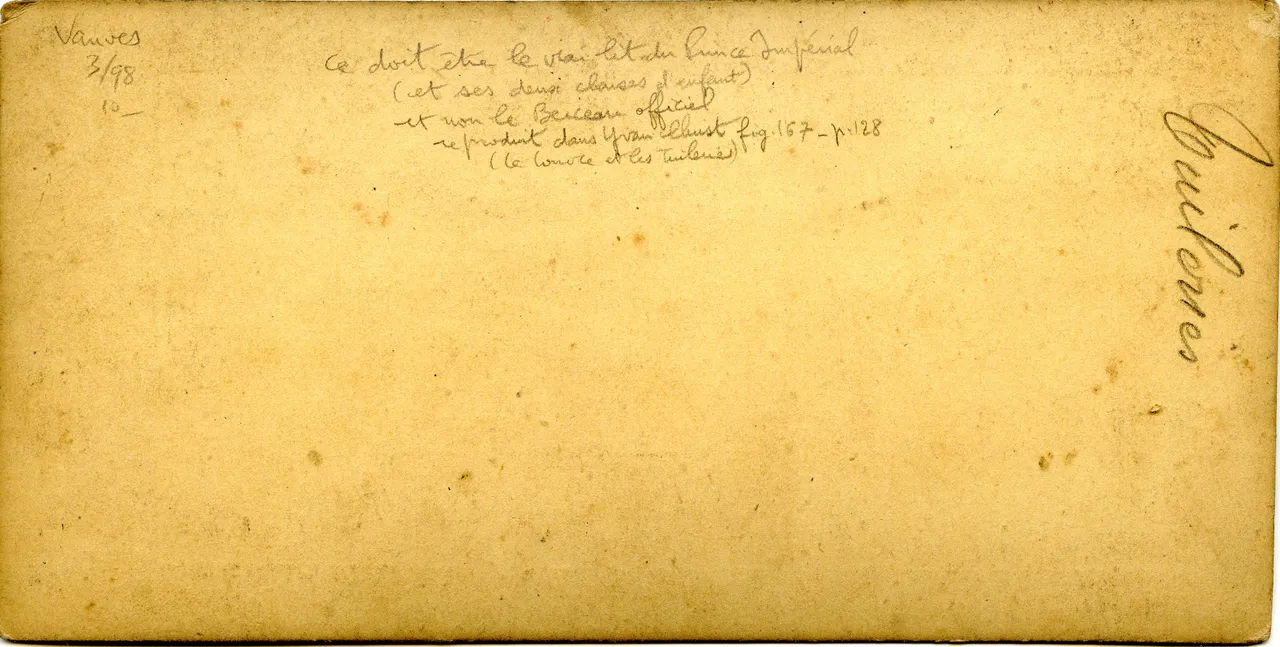 Vanves
3/98
10_
Ce doit être le vrai lit du Prince Impérial
(et ses deux chaises d'enfant)
et non le Berceau officiel
reproduit dans Yvan Christ fig. 167 _ p. 128
(Le Louvre et les Tuileries)
Tuileries